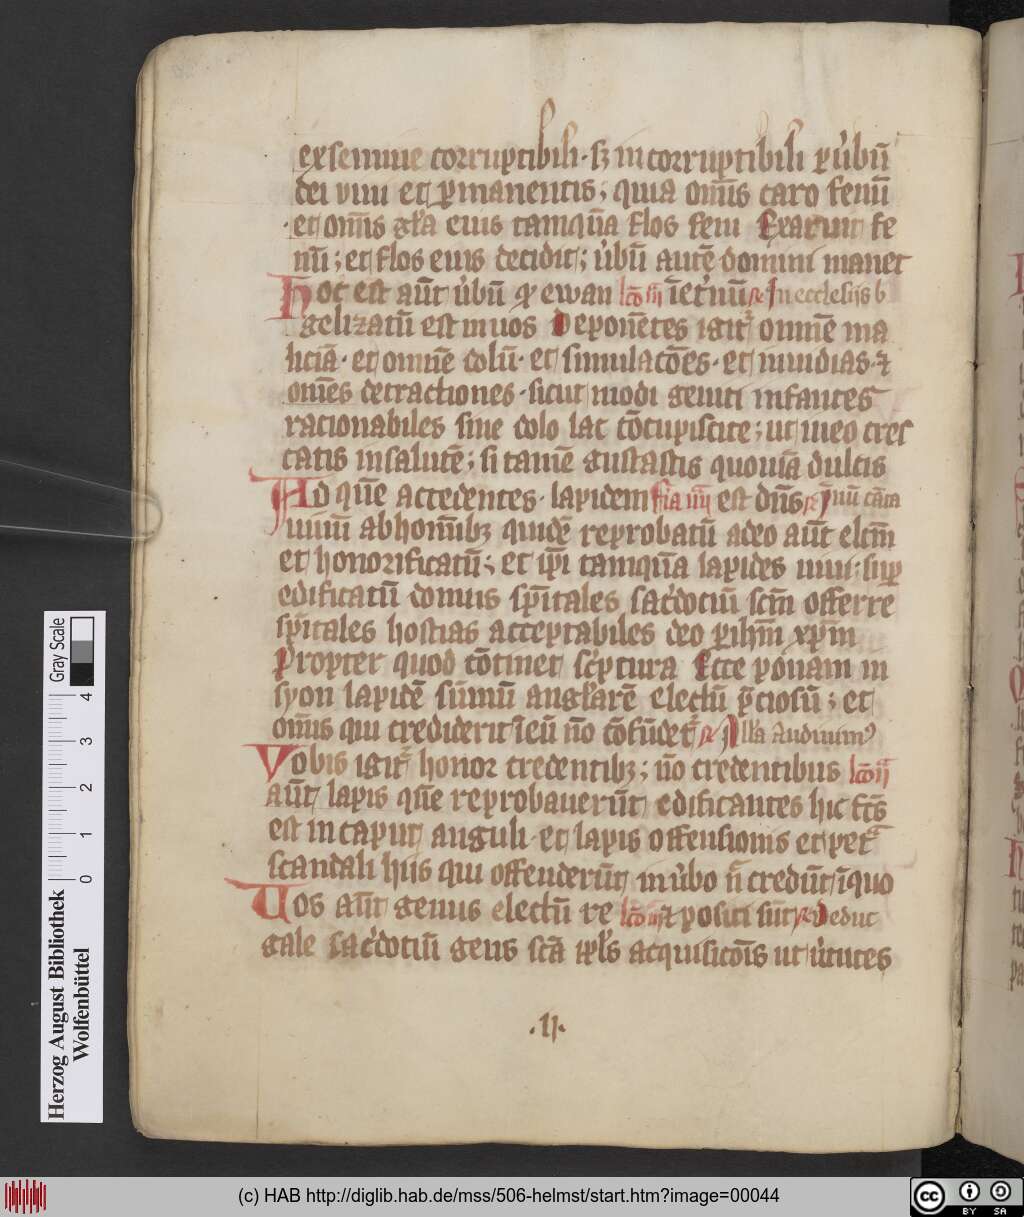 ex semine corruptibili · sꝫ incorruptibili ꝑ ůbū
dei viui et ꝑmanentis ; quia om̄s caro fenū
· et om̄s gl̓a eius tamqͣ̄ flos feni Exaruit fe
nū ; et flos eius decidit ; ůbū autē domini manet
Hoc est aūt ůbū qͥ ewan lc̄o iij īet̓nū ℟ In ecclesiis b
gelizatū est in uos Deponētes igit᷑ omnē ma
liciā · et omnē dolū · et simulacōes · et inuidias · ⁊
omēs detractiones · sicut modi geniti infantes
racionabiles sine dolo lac cōcupiscite ; ut in eo cres
catis in salutē ; si tamē gustastis quoniā dulcis
Ad quē accedentes · lapidem fīa iiij est dn̄s ℟ Inū cāta
uiuū ab homībꝫ quidē reprobatū a deo aūt elcm̄
et honorificatū ; et ip̄i tamqͣ̄ lapides uiui · suꝑ
edificatū domus sp̄itales sac̓dociū scm̄ offerre
sp̄itales hostias acceptabiles deo ꝑ ihm̄ xp̄m
Propter quod cōtinet sc̓ptura Ecce ponam in
syon lapidē sūmū angl̓arē electū p̄ciosū ; et
om̄is qui crediderit ī eū nō cōfūdet᷑ ℟ All̓a Audiuimꝰ
Vobis igit᷑ honor credentibꝫ ; nō credentibus lc̄o ij
aūt lapis quē reprobauerūt edificantes hic fc̄s
est in caput anguli · et lapis offensionis et pet̄
scandali hiis qui offenderūt in ůbo n̄ credūt ī quo
Uos aūt genus electū re lc̄o iij ⁊ positi sūt ℟ Deduc
gale sac̓dociū gens scā ppl̓s acquisicōis ut ůtutes
· ij ·
Gray Scale
4
3
2
1
0
Herzog August Bibliothek
Wolfenbüttel
(c) HAB http://diglib.hab.de/mss/506-helmst/start.htm?image=00044
cc
BY SA